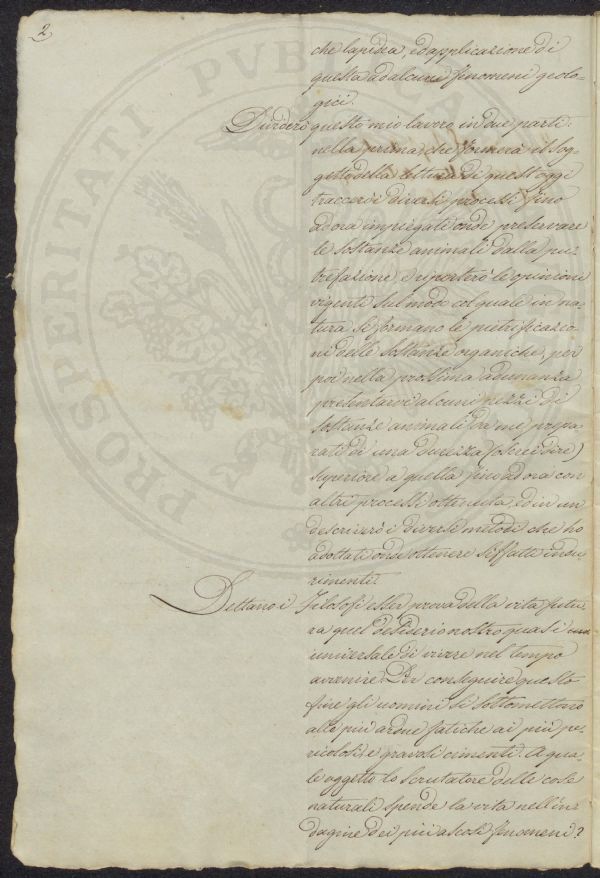 2
che lapidea, ed applicazione di
questa ad alcuni fenomeni geolo-
gici.
Dividerò questo mio lavoro in due parti:
nella prima, che formerà il sog-
getto della lettura di quest'oggi
traccerò i diversi processi fino
ad ora impiegati onde preservare
le sostanze animali dalla pu-
trefazione, e riporterò le opinioni
vigenti sul modo col quale in na-
tura si formano le pietrificazio-
ni delle sostanze organiche, per
poi nella prossima adunanza
presentarvi alcuni pezzi di
sostanze animali da me prepa-
rati di una durezza (oserei dire)
superiore a quella fino ad ora con
altri processi ottenuta, ed in un
descriverò i diversi metodi che ho
adottati onde ottenere siffatte indu-
rimenti.
Dettano i Filosofi esser prova della vita futu-
ra quel desiderio nostro quasi
universale di vivere nel tempo
avvenire. Per conseguire questo
fine gli uomini si sottomettono
alle più ardue fatiche ai più pe-
ricolosi, e gravosi cimenti. A qua-
le oggetto lo scrutatore delle cose
naturali spende la vita nell'in-
dagine dei più ascosi fenomeni?
PROSPERITATI PVBLICAE